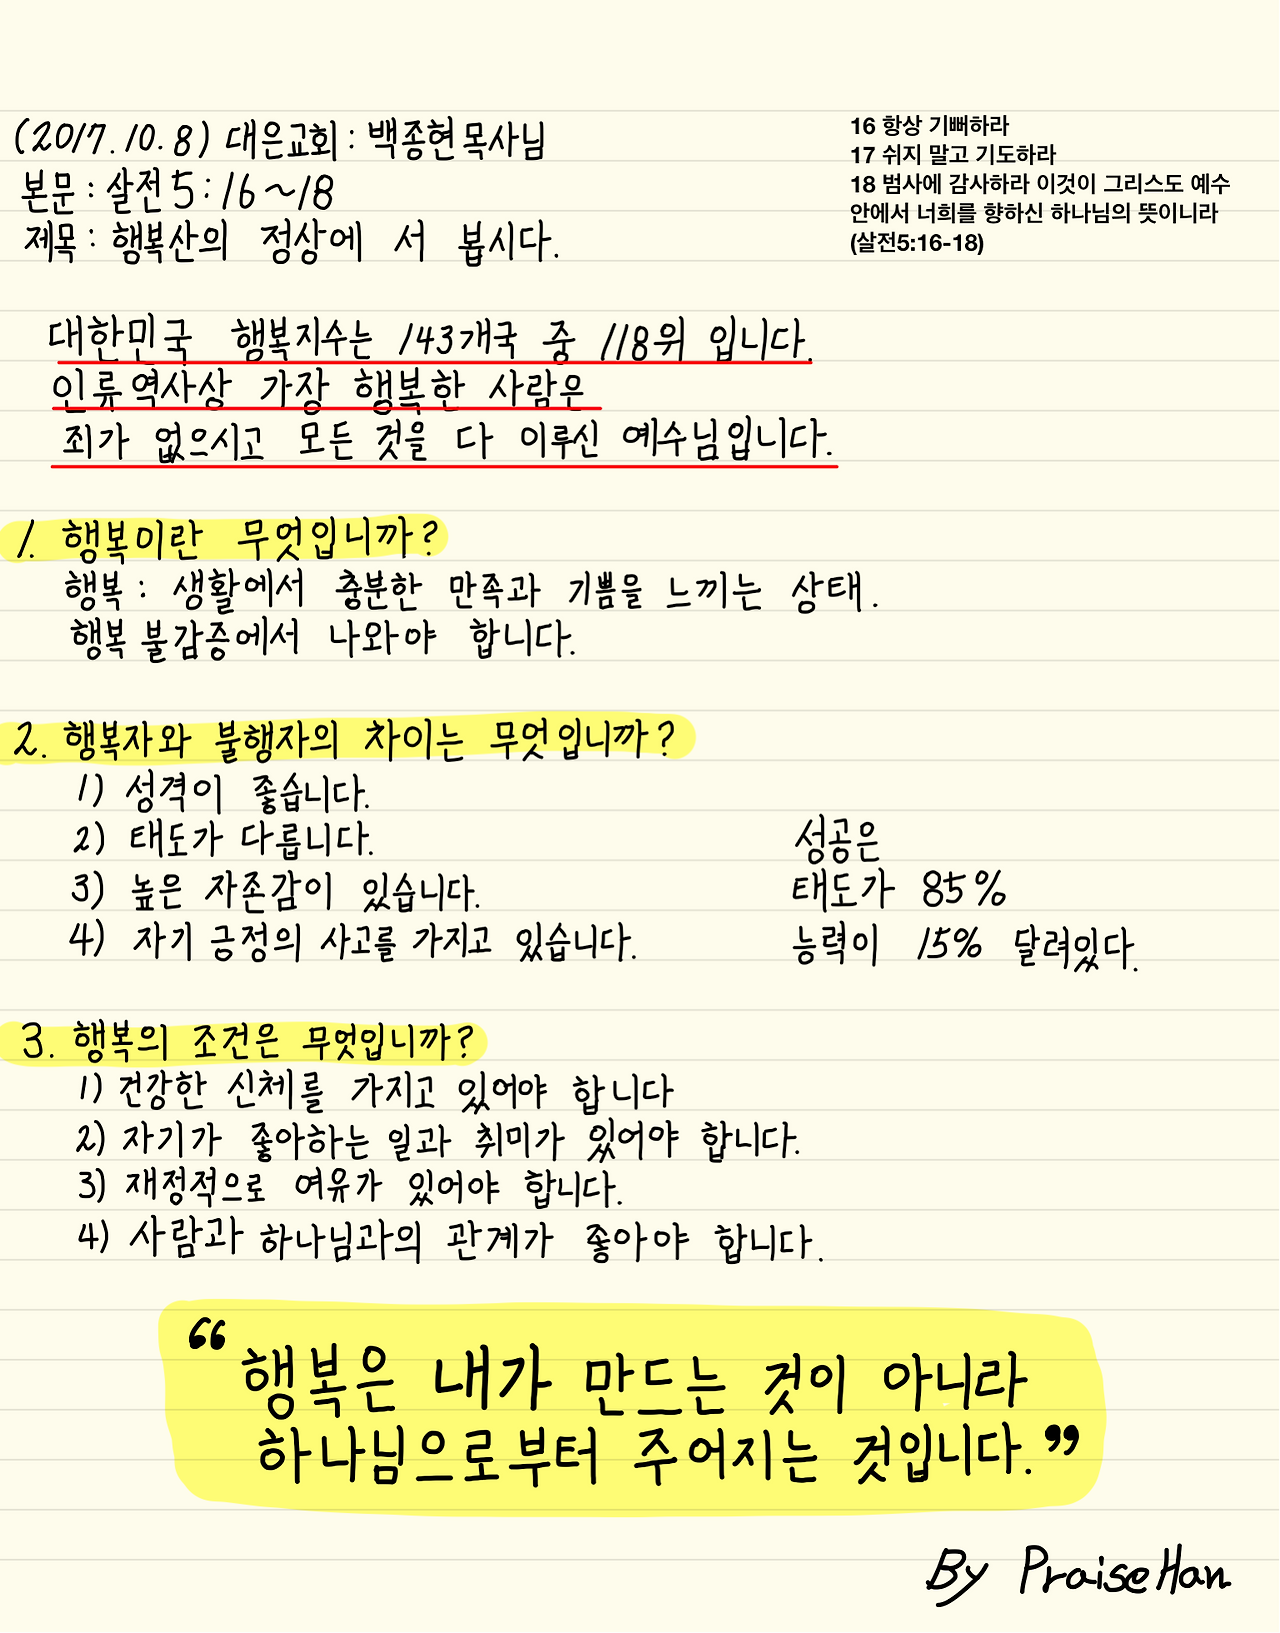 (2017.10.8) 대은교회 : 백종현목사님
본문 : 살전5:16~18
제목 : 행복산의 정상에 서 봅시다.
16 항상 기뻐하라
17 쉬지 말고 기도하라
18 범사에 감사하라 이것이 그리스도 예수
안에서 너희를 향하신 하나님의 뜻이니라
(살전5:16-18)
대한민국 행복지수는 143개국 중 118위 입니다.
인류역사상 가장 행복한 사람은
죄가 없으시고 모든 것을 다 이루신 예수님입니다.
1. 행복이란 무엇입니까?
행복 : 생활에서 충분한 만족과 기쁨을 느끼는 상태.
행복 불감증에서 나와야 합니다.
2. 행복자와 불행자의 차이는 무엇입니까?
1) 성격이 좋습니다.
2) 태도가 다릅니다.
3) 높은 자존감이 있습니다.
4) 자기 긍정의 사고를 가지고 있습니다.
성공은
태도가 85%
능력이 15% 달려있다.
3. 행복의 조건은 무엇입니까?
1) 건강한 신체를 가지고 있어야 합니다
2) 자기가 좋아하는 일과 취미가 있어야 합니다.
3) 재정적으로 여유가 있어야 합니다.
4) 사람과 하나님과의 관계가 좋아야 합니다.
“행복은 내가 만드는 것이 아니라
하나님으로부터 주어지는 것입니다.”
By PraiseHan